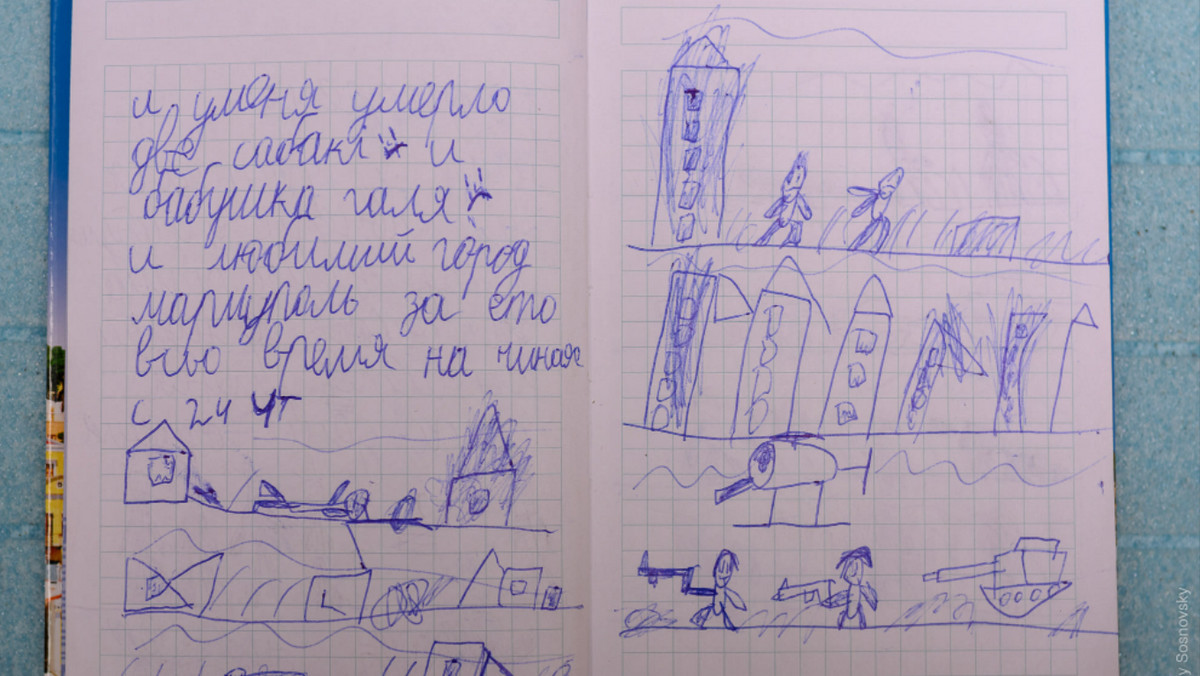 и уменя умерло
две сабакі и
бабушка галя
и любимий город
мариуполь за ето
всю время на чиная
с 24 чт
y Sosnovsky